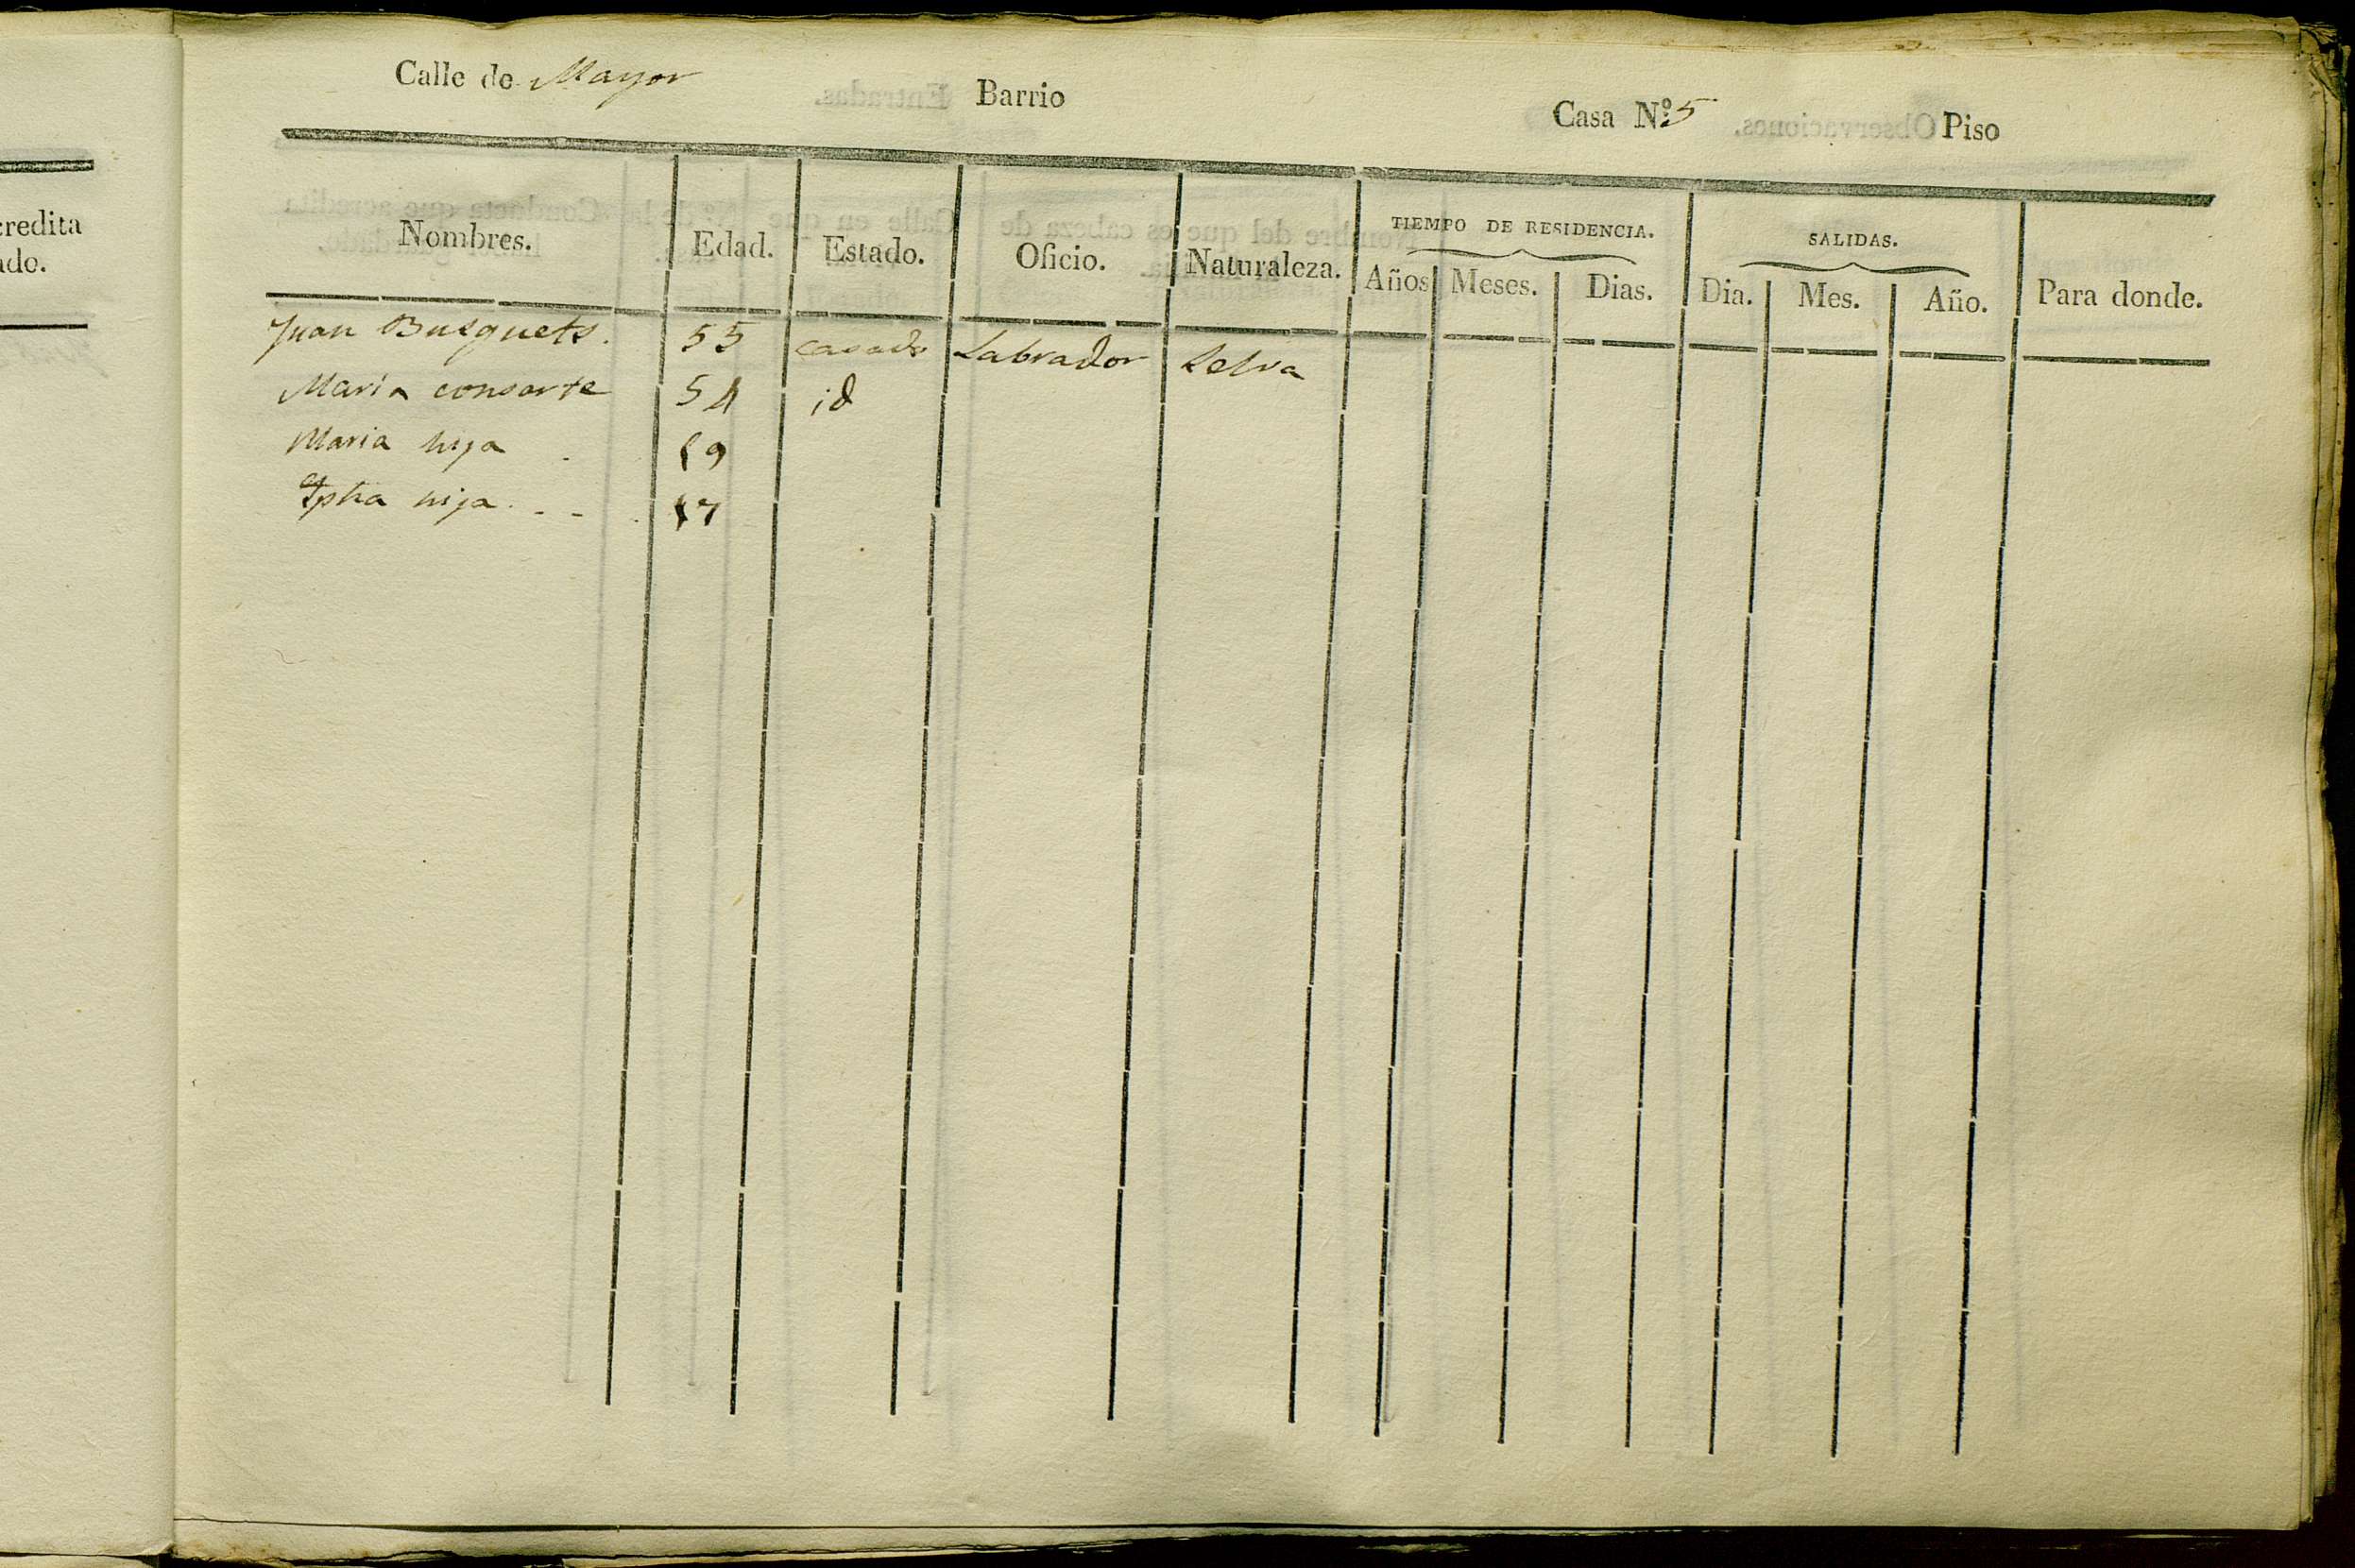 credita
ado.
Calle de Mayor Barrio Casa Nº 5 Piso
Nombres. Edad. Estado. Oficio. Naturaleza. TIEMPO DE RESIDENCIA. SALIDAS.
Años Meses. Dias. Dia. Mes. Año. Para donde.
Juan Busquets. 55 casado Labrador Selva
Maria consorte 54 id
Maria hija 19
hija 17